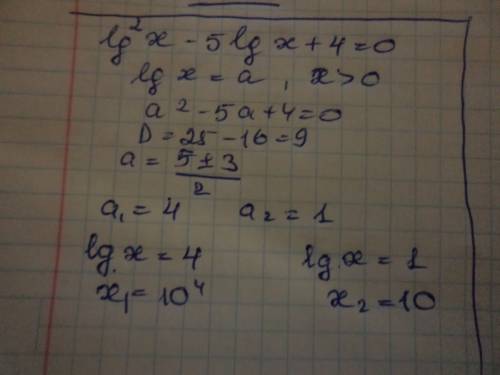 lg²x - 5lgx + 4 = 0
lgx = a, x > 0
a² - 5a + 4 = 0
D = 25 - 16 = 9
a = (5 ± 3)/2
a₁ = 4 a₂ = 1
lg.x = 4 lg.x = 1
x₁ = 10⁴ x₂ = 10